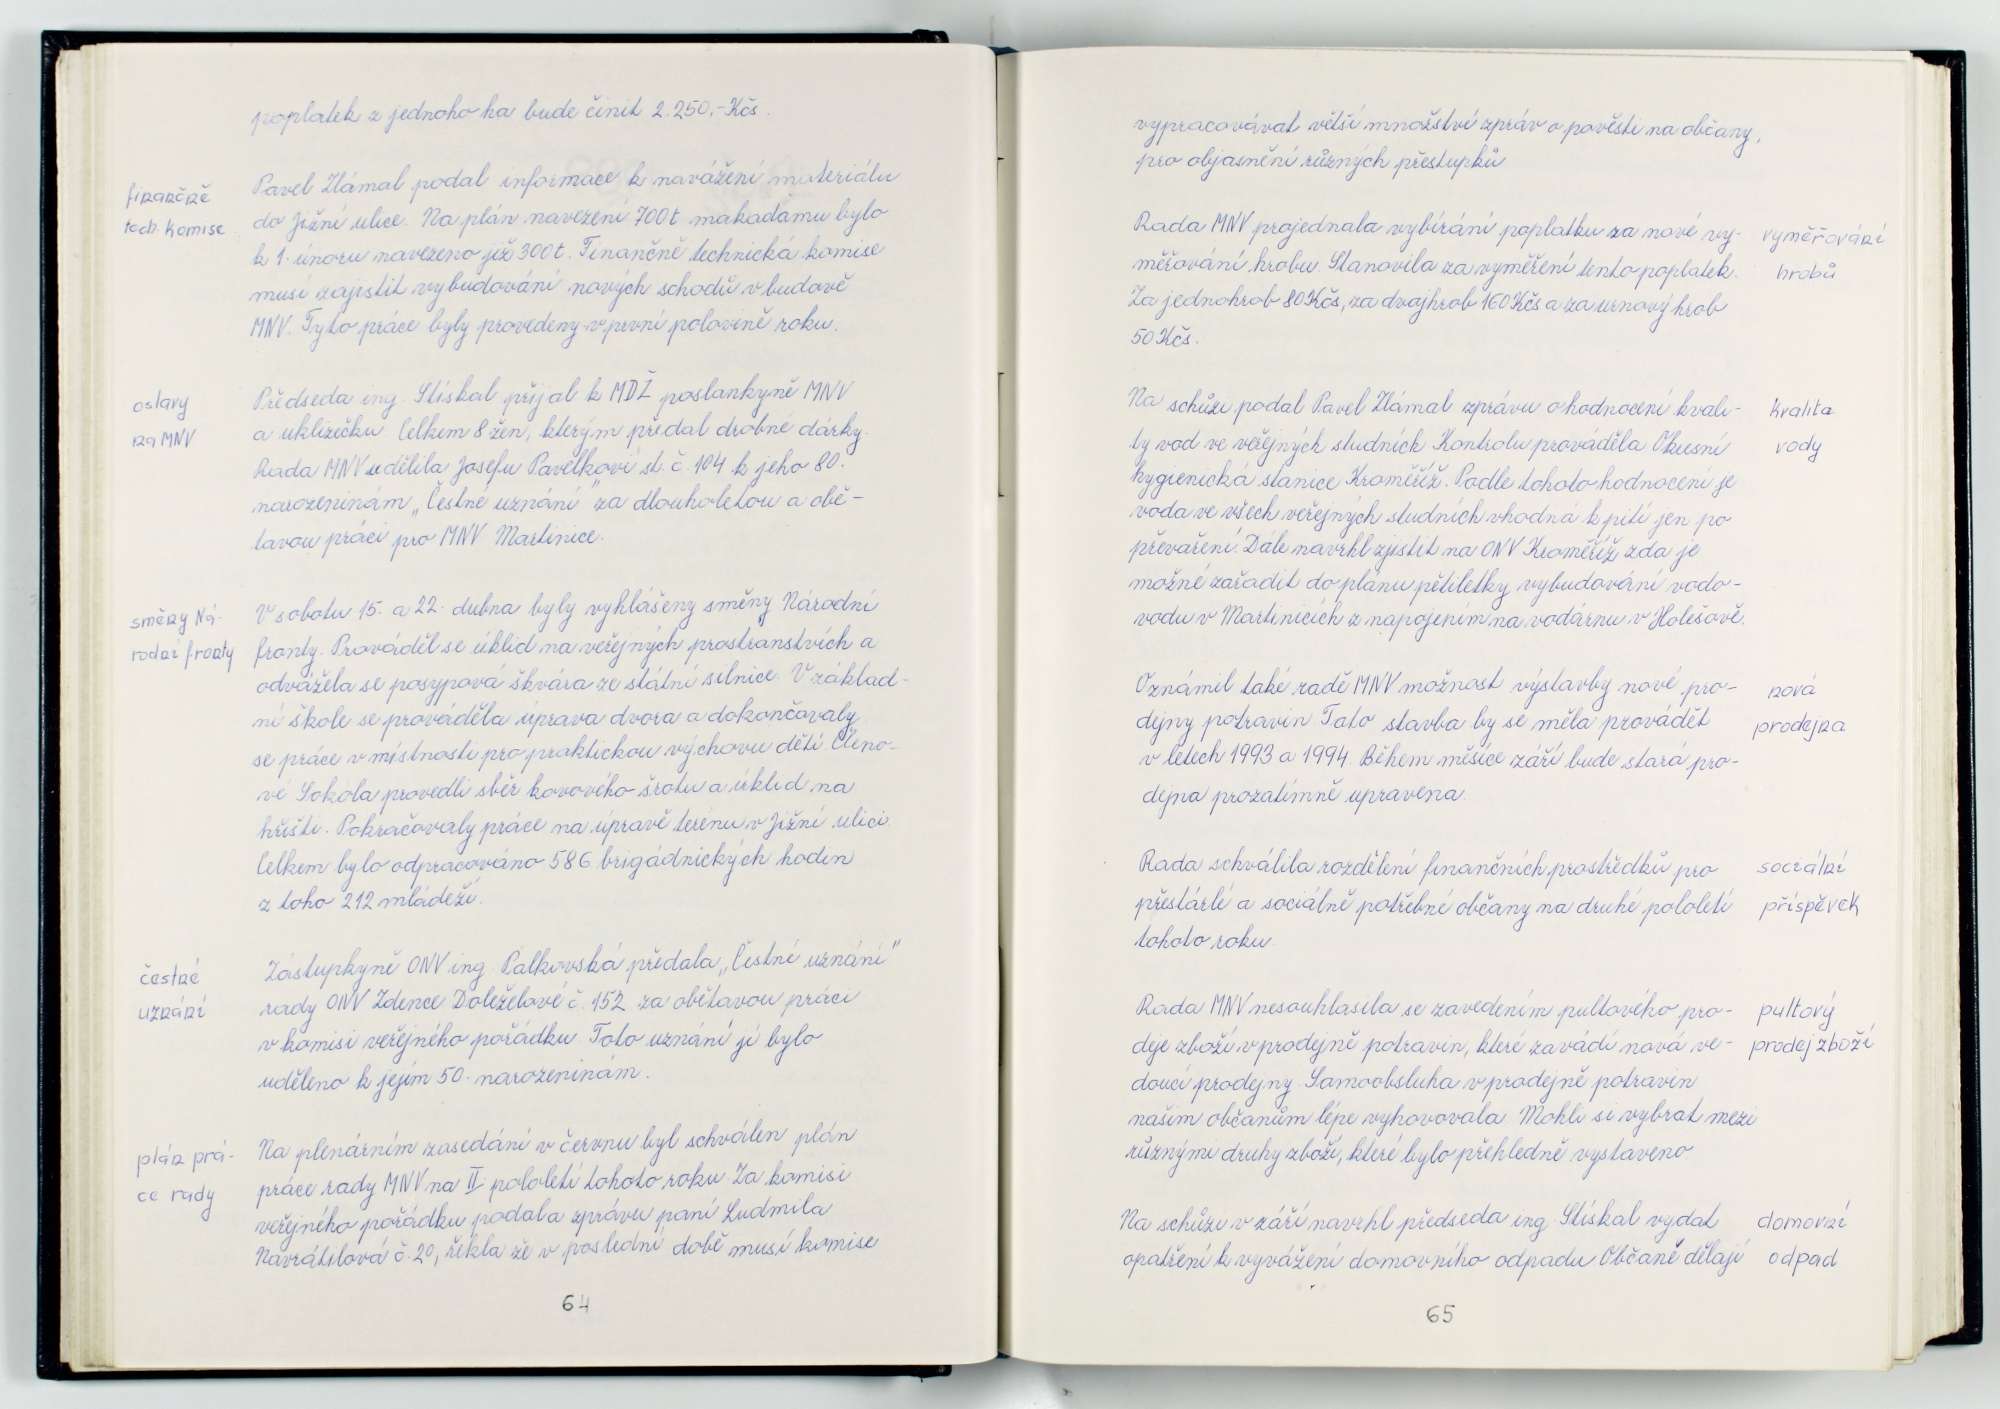 poplatek z jednoho ha bude činit 2.250,- Kčs.
finančně
tech. komise
Pavel Zlámal podal informace k navážení materiálu
do Jižní ulice. Na plán navezení 700 t makadamu bylo
k 1. únoru navezeno již 300 t. Finančně technická komise
musí zajistit vybudování nových schodů v budově
MNV. Tyto práce byly provedeny v první polovině roku.
oslavy
na MNV
Předseda ing. Stískal přijal k MDŽ poslankyně MNV
a uklizečku Celkem 8 žen, kterým předal drobné dárky.
Rada MNV udělila Josefu Pavelkovi st. č. 104 k jeho 80.
narozeninám „Čestné uznání" za dlouholetou a obě-
tavou práci pro MNV Martinice.
směny Ná-
rodní fronty
V sobotu 15. a 22. dubna byly vyhlášeny směny Národní
fronty. Prováděl se úklid na veřejných prostranstvích a
odvážela se posypová škvára ze státní silnice. V základ-
ní škole se prováděla úprava dvora a dokončovaly
se práce v místnosti pro praktickou výchovu dětí. Členo-
vé Sokola provedli sběr kovového šrotu a úklid na
hřišti. Pokračovaly práce na úpravě terénu v Jižní ulici.
Celkem bylo odpracováno 586 brigádnických hodin
z toho 212 mládeží.
čestné
uznání
Zástupkyně ONV ing. Palkovská předala „Čestné uznání"
rady ONV Zdence Doleželové č. 152 za obětavou práci
v komisi veřejného pořádku. Toto uznání jí bylo
uděleno k jejím 50. narozeninám.
plán prá-
ce rady
Na plenárním zasedání v červnu byl schválen plán
práce rady MNV na II. pololetí tohoto roku Za komisi
veřejného pořádku podala zprávu paní Ludmila
Navrátilová č. 20, řekla že v poslední době musí komise
64
vypracovávat větší množství zpráv o pověsti na občany,
pro objasnění různých přestupků
Rada MNV projednala vybírání poplatku za nové vy-
měřování hrobu. Stanovila za vyměření tento poplatek.
Za jednohrob 80 Kčs, za dvojhrob 160 Kčs a za urnový hrob
50 Kčs.
vyměřování
hrobů
Na schůzi podal Pavel Zlámal zprávu o hodnocení kvali-
ty vod ve veřejných studních Kontrolu prováděla Okresní
hygienická stanice Kroměříž. Podle tohoto hodnocení je
voda ve všech veřejných studních vhodná k pití jen po
převaření. Dále navrhl zjistit na ONV Kroměříž zda je
možné zařadit do plánu pětiletky vybudování vodo-
vodu v Martinicích z napojením na vodárnu v Holešově.
kvalita
vody
Oznámil také radě MNV možnost výstavby nové pro-
dejny potravin Tato stavba by se měla provádět
v letech 1993 a 1994. Během měsíce září bude stará pro-
dejna prozatímně upravena.
nová
prodejna
Rada schválila rozdělení finančních prostředků pro
přestárlé a sociálně potřebné občany na druhé pololetí
tohoto roku.
sociální
příspěvek
Rada MNV nesouhlasila se zavedením pultového pro-
deje zboží v prodejně potravin, které zavádí nová ve-
doucí prodejny. Samoobsluha v prodejně potravin
našim občanům lépe vyhovovala Mohli si vybrat mezi
různými druhy zboží, které bylo přehledně vystaveno
pultový
prodej zboží
Na schůzi v září navrhl předseda ing. Stískal vydat
opatření k vyvážení domovního odpadu Občané dělají
domovní
odpad
65